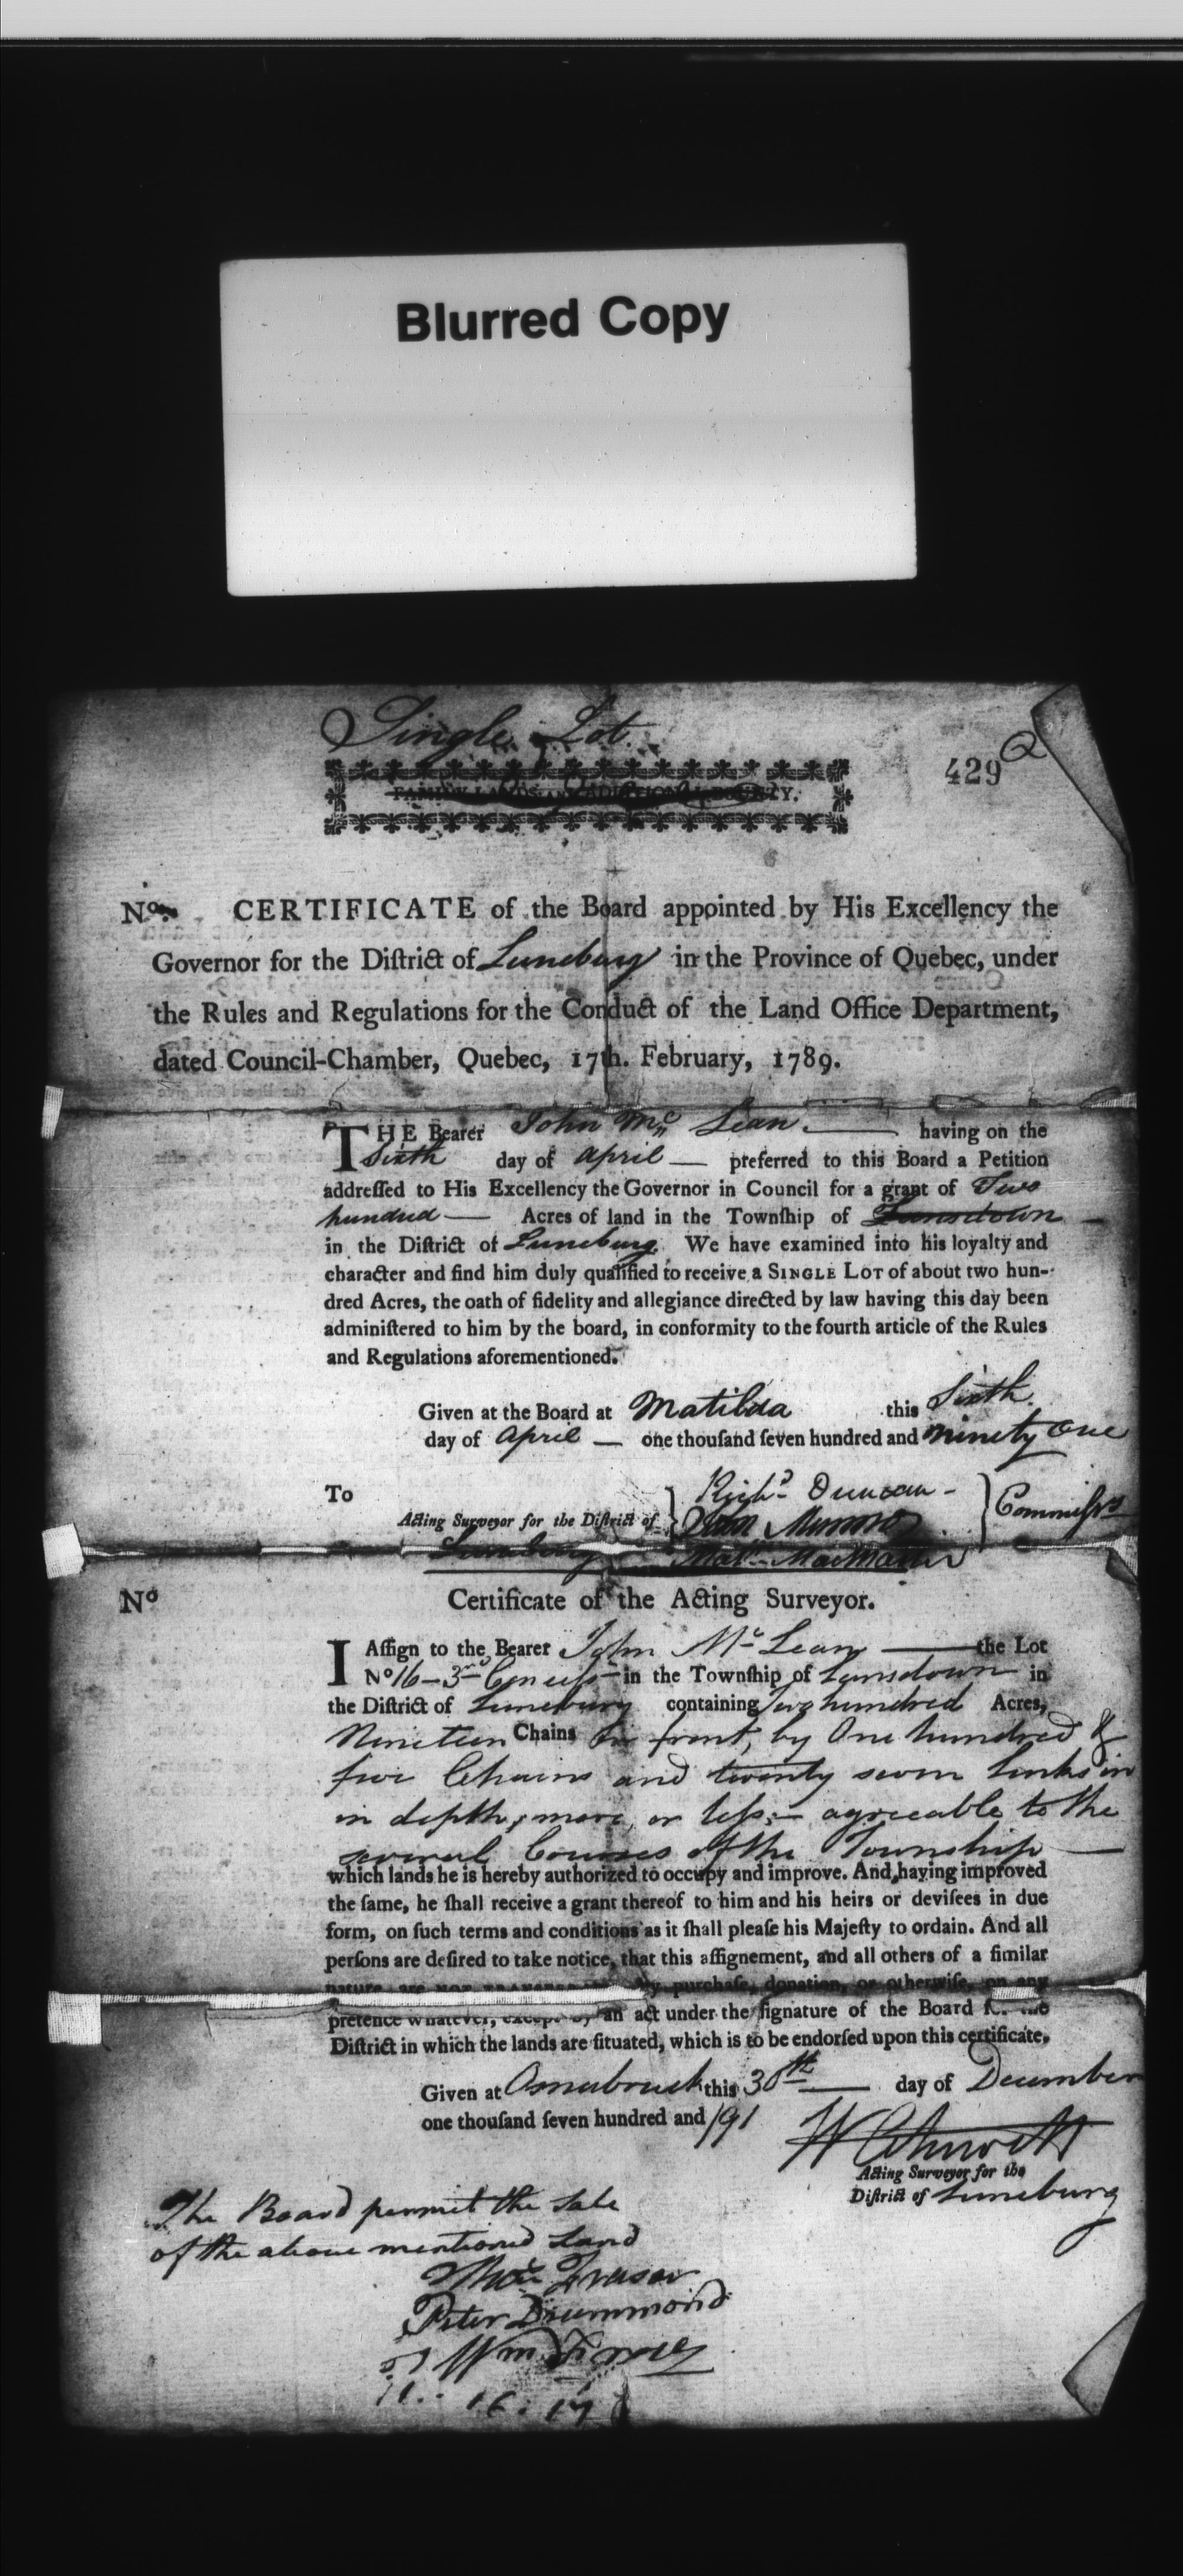 Blurred Copy
Single Lot.
429
FAMILY LANDS ADDITIONAL BOUNTY.
No. CERTIFICATE of the Board appointed by His Excellency the
Governor for the Diſtrict of Luneburg in the Province of Quebec, under
the Rules and Regulations for the Conduct of the Land Office Department,
dated Council-Chamber, Quebec, 17th. February, 1789.
THE Bearer John Mc Lean. having on the
Sixth day of April — preferred to this Board a Petition
addreſſed to His Excellency the Governor in Council for a grant of Two
hundred — Acres of land in the Townſhip of Lansdown —
in the Diſtrict of Luneburg. We have examined into his loyalty and
character and find him duly qualified to receive a SINGLE LOT of about two hun-
dred Acres, the oath of fidelity and allegiance directed by law having this day been
adminiſtered to him by the board, in conformity to the fourth article of the Rules
and Regulations aforementioned.
Given at the Board at Matilda this Sixth
day of April — one thouſand ſeven hundred and ninety One
To Richd. Duncan -
Acting Surveyor for the Diſtrict of John Munro Commiſsrs
Luneburg
No Certificate of the Acting Surveyor.
I Aſſign to the Bearer John Mc Lean — the Lot
No 16 — 3rd Conceſs in the Townſhip of Lansdown in
the Diſtrict of Luneburg containing two hundred Acres,
Nineteen Chains in front, by One hundred &
five Chains and twenty seven links in
in depth, more, or leſs; — agreeable to the
several Courses of the Township —
which lands he is hereby authorized to occupy and improve. And, having improved
the ſame, he ſhall receive a grant thereof to him and his heirs or deviſees in due
form, on ſuch terms and conditions as it ſhall pleaſe his Majeſty to ordain. And all
perſons are deſired to take notice, that this aſſignement, and all others of a ſimilar
nature, are NOT by purchaſe, donation, or otherwiſe, on any
pretence whatever, except by an act under the ſignature of the Board
Diſtrict in which the lands are ſituated, which is to be endorſed upon this certificate.
Given at Osnabruck this 30th — day of December
one thouſand ſeven hundred and /91
Acting Surveyor for the
Diſtrict of Luneburg
The Board permit the Sale
of the above mentioned Land
Thos Fraser
Peter Drummond